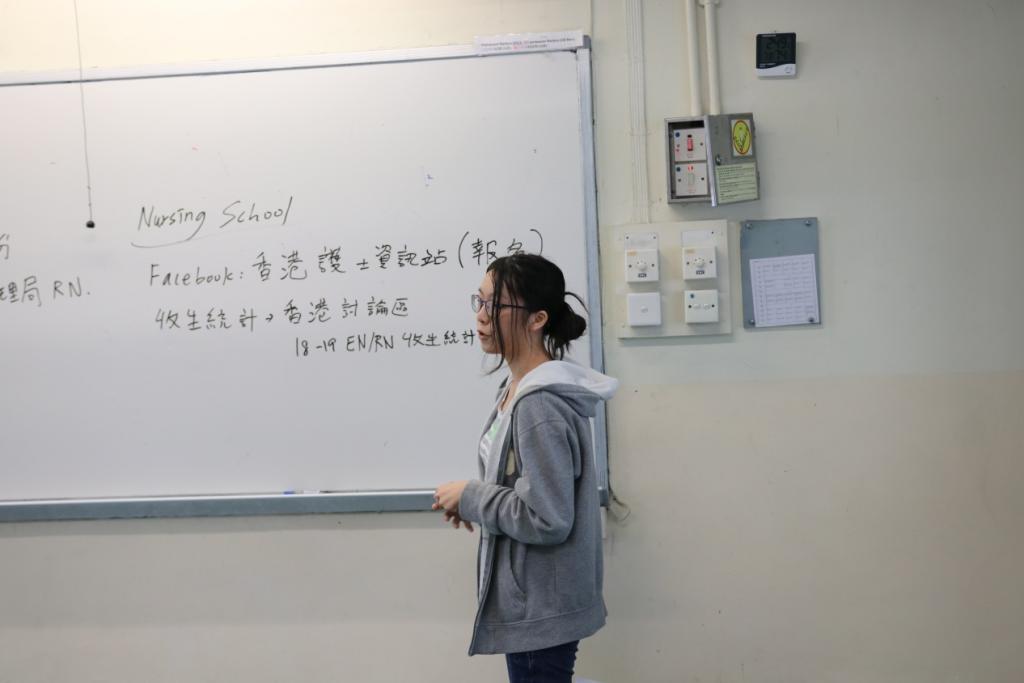 Nursing School
Facebook: 香港護士資訊站 (報名)
理局 RN.
收生統計 → 香港討論區
18-19 EN/RN 收生統計